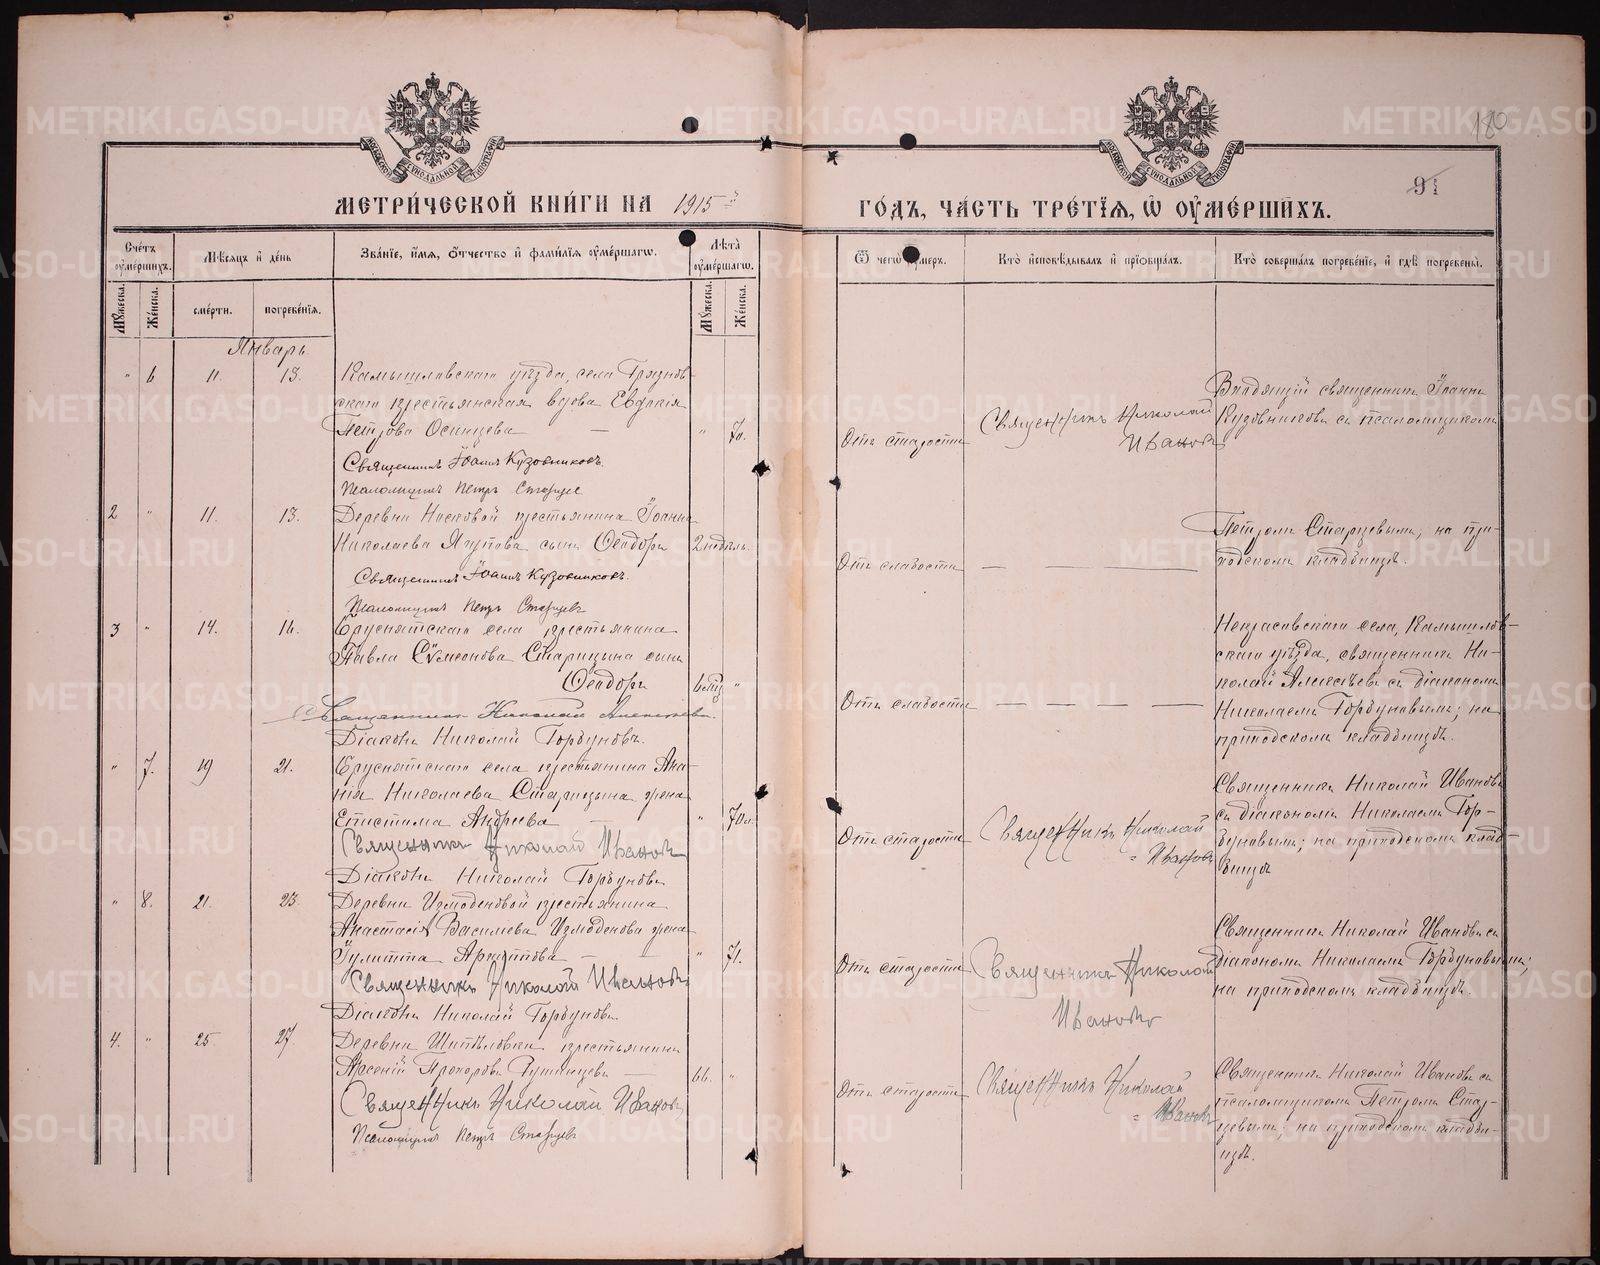 180
91
МЕТРИ́ЧЕСКОЙ КНИ́ГИ НА 1915й
ГО́ДЪ, ЧА́СТЬ ТРЕ́ТІЯ, Ѡ҆ ОУ҆МЕ́РШИХЪ.
Сче́тъ оу҆ме́ршихъ.
Мѣ́сяцъ и҆ де́нь
Зва́нїе, и҆́мя, ѻ҆́тчество и҆ фами́лїя оу҆ме́ршагѡ.
Лѣ́та оу҆ме́ршагѡ.
Ѿ чегѡ̀ оу҆́меръ.
Кто̀ и҆сповѣ́дывалъ и҆ прїѡбща́лъ.
Кто̀ соверша́лъ погребе́нїе, и҆ гдѣ̀ погребены̀.
Мꙋ́жеска.
Же́нска.
сме́рти.
погребе́нїя.
Мꙋ́жеска.
Же́нска.
Январь
" 6 11. 13. Камышловскаго уѣзда, села Грязнов-
скаго крестьянская вдова Евдокія
Петрова Осинцева — " 70.
Священникъ Іоаннъ Кузовниковъ.
Псаломщикъ Петръ Старцев
Отъ старости
Священникъ Николай
Ивановъ
Владящій священникъ Іоаннъ
Кузовниковъ съ псаломщикомъ
2 " 11. 13. Деревни крестьянина Іоанна
Николаева Якупова сынъ Ѳеодоръ 2 недѣль.
Священникъ Іоаннъ Кузовниковъ.
Псаломщикъ Петръ Старцевъ
Отъ слабости — — —
Петромъ Старцевымъ; на при-
ходскомъ кладбищѣ.
3 " 14. 16. Бруснятскаго села крестьянина
Павла Сѵмеонова Старицына сынъ
Ѳеодоръ 6 мѣс "
Священникъ Николай Алексѣевъ.
Діаконъ Николай Горбуновъ.
Отъ слабости — — — —
Некрасовскаго села, Камышлов-
скаго уѣзда, священникъ Ни-
колай Алексѣевъ съ діакономъ
Николаемъ Горбуновымъ; на
приходскомъ кладбищѣ.
" 7. 19 21. Бруснятскаго села крестьянина Ана-
нія Николаева Старицына жена
Епистима Андреева — " 70 л.
Священникъ Николай Ивановъ
Діаконъ Николай Горбуновъ
Отъ старости
Священникъ Николай
Ивановъ
Священникъ Николай Ивановъ
съ діакономъ Николаемъ Гор-
буновымъ; на приходскомъ клад-
бищѣ
" 8. 21. 23. Деревни Измоденовой крестьянина
Анастасія Василіева Измоденова жена
Іулитта Архиппова — " 71.
Священникъ Николай Ивановъ
Діаконъ Николай Горбуновъ
Отъ старости
Священникъ Николай
Ивановъ
Священникъ Николай Ивановъ съ
діакономъ Николаемъ Горбуновымъ;
на приходскомъ кладбищѣ.
4. " 25. 27. Деревни Шипѣловки крестьянинъ
Арсеній Прохоровъ — 66. "
Священникъ Николай Ивановъ
Псаломщикъ Петръ Старцевъ
Отъ старости
Священникъ Николай
Ивановъ
Священникъ Николай Ивановъ съ
псаломщикомъ Петромъ Стар-
цевымъ; на приходскомъ кладби-
щѣ.